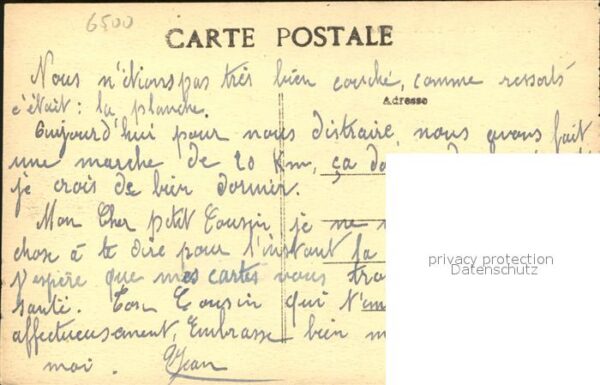 6500
CARTE POSTALE
Nous n'étions pas très bien couché, comme ressorts
Adresse
c'était : la planche.
Aujourd'hui pour nous distraire, nous avons fait
une marche de 20 Km, ça
je crois de bien dormir.
Mon Cher petit Cousin, je ne
chose à te dire pour l'instant
J'espère que mes cartes vous
privacy protection
Datenschutz
santé. Ton Cousin qui t'
affectueusement, Embrasse bien
moi. Jean